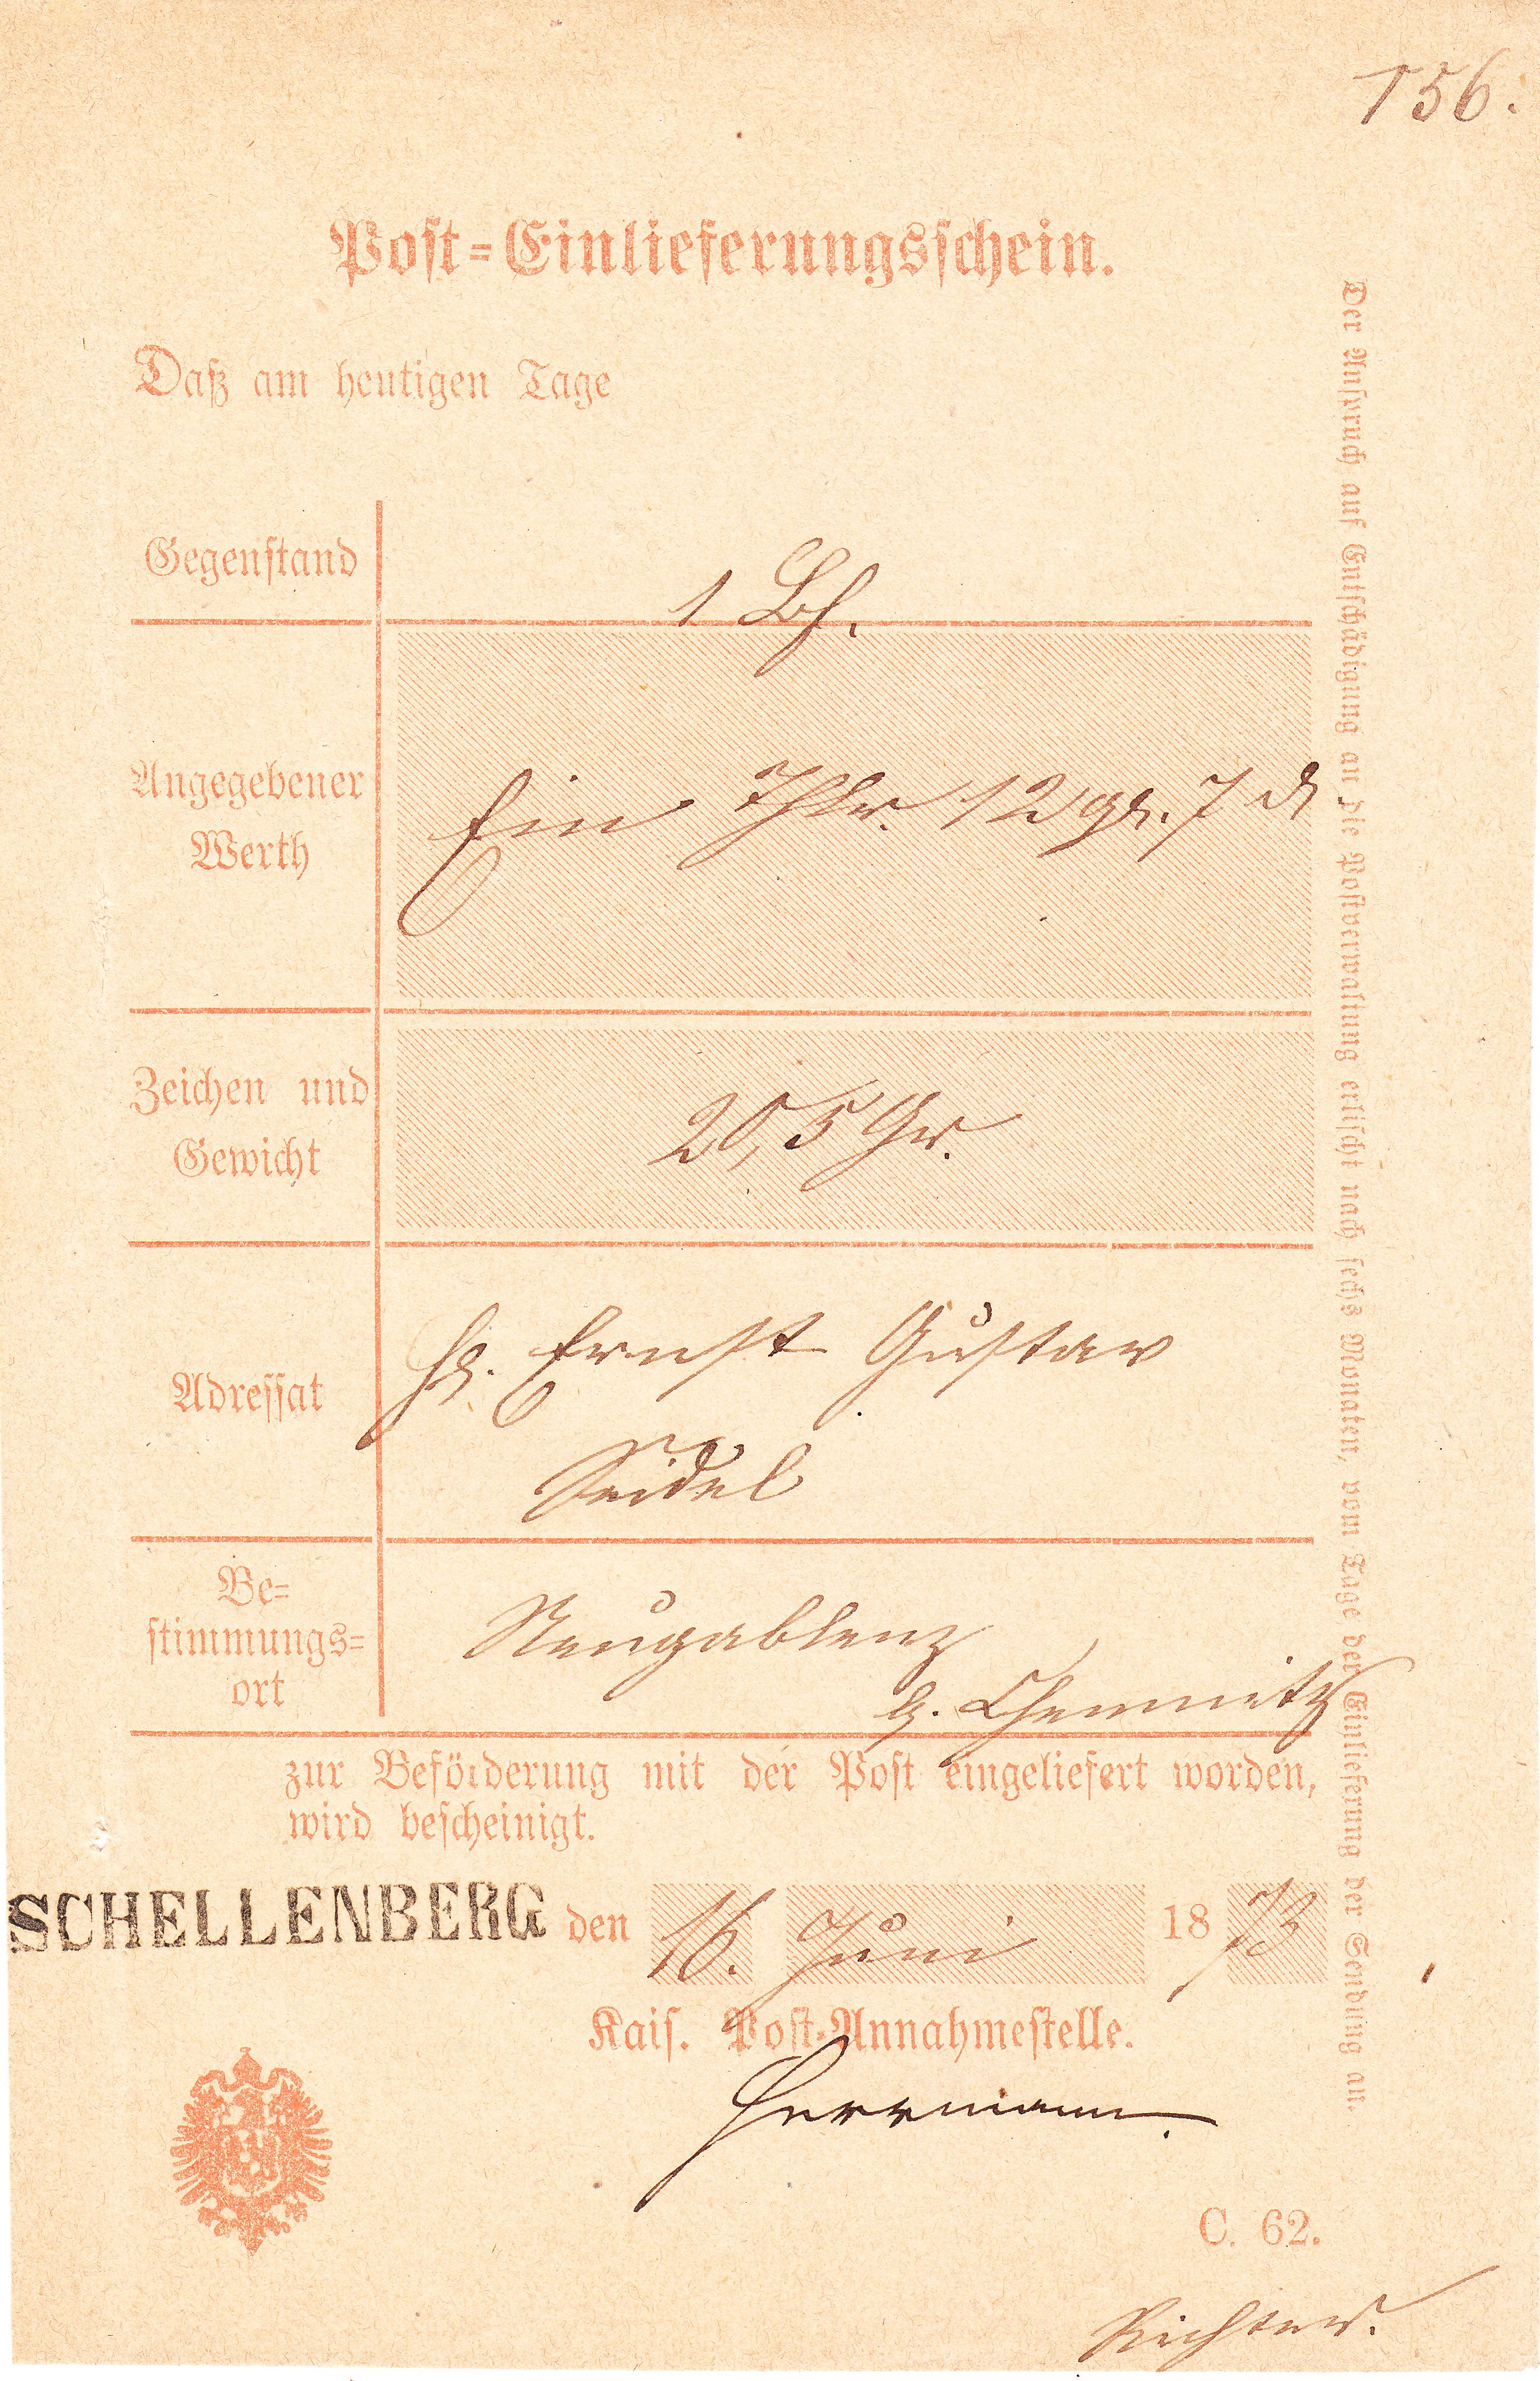 156.
Post=Einlieferungsschein.
Daß am heutigen Tage
Gegenstand
1 Bf.
Angegebener
Werth
Ein Thlr. 12 gr. 7 ₰
Zeichen und
Gewicht
20,5 Gr.
Adressat
Hr. Ernst Gustav
Seidel
Be=
stimmungs=
ort
Neugablenz
b. Chemnitz
zur Beförderung mit der Post eingeliefert worden,
wird bescheinigt.
SCHELLENBERG den 16. Juni 1873
Kais. Post-Annahmestelle.
Herrmann.
C. 62.
Richter.
Der Anspruch auf Entschädigung an die Postverwaltung erlischt nach sechs Monaten, vom Tage der Einlieferung der Sendung an.